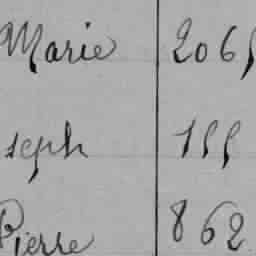 Marie 2065
seph 155
Pierre 862